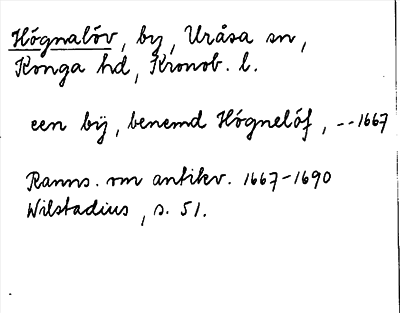 Högnalöv, by, Uråsa sn,
Konga hd, Kronob. l.
een bÿ, benemd Högnelöf, --1667
Ranns. om antikv. 1667-1690
Wilstadius, s. 51.